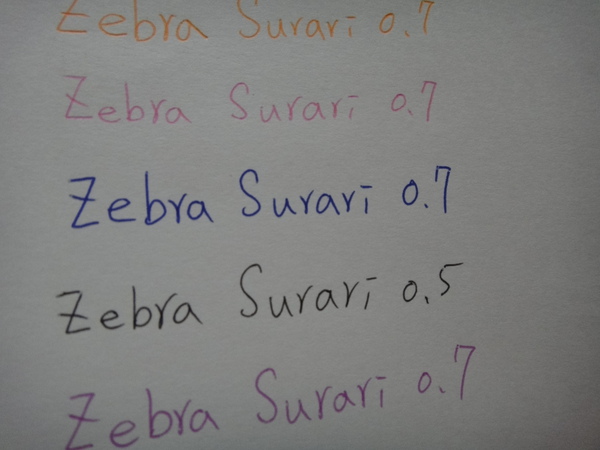 Zebra Surari 0.7
Zebra Surari 0.7
Zebra Surari 0.7
Zebra Surari 0.5
Zebra Surari 0.7